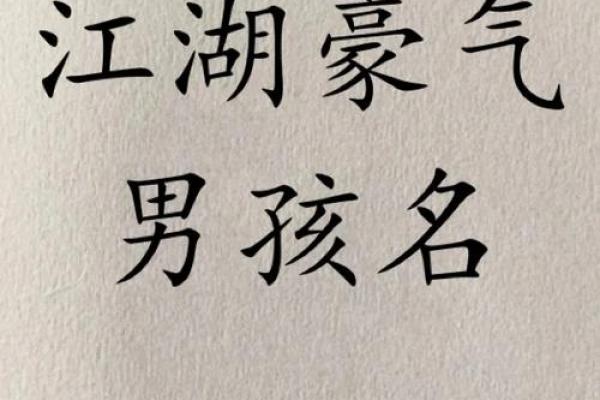 江湖豪气
男孩名